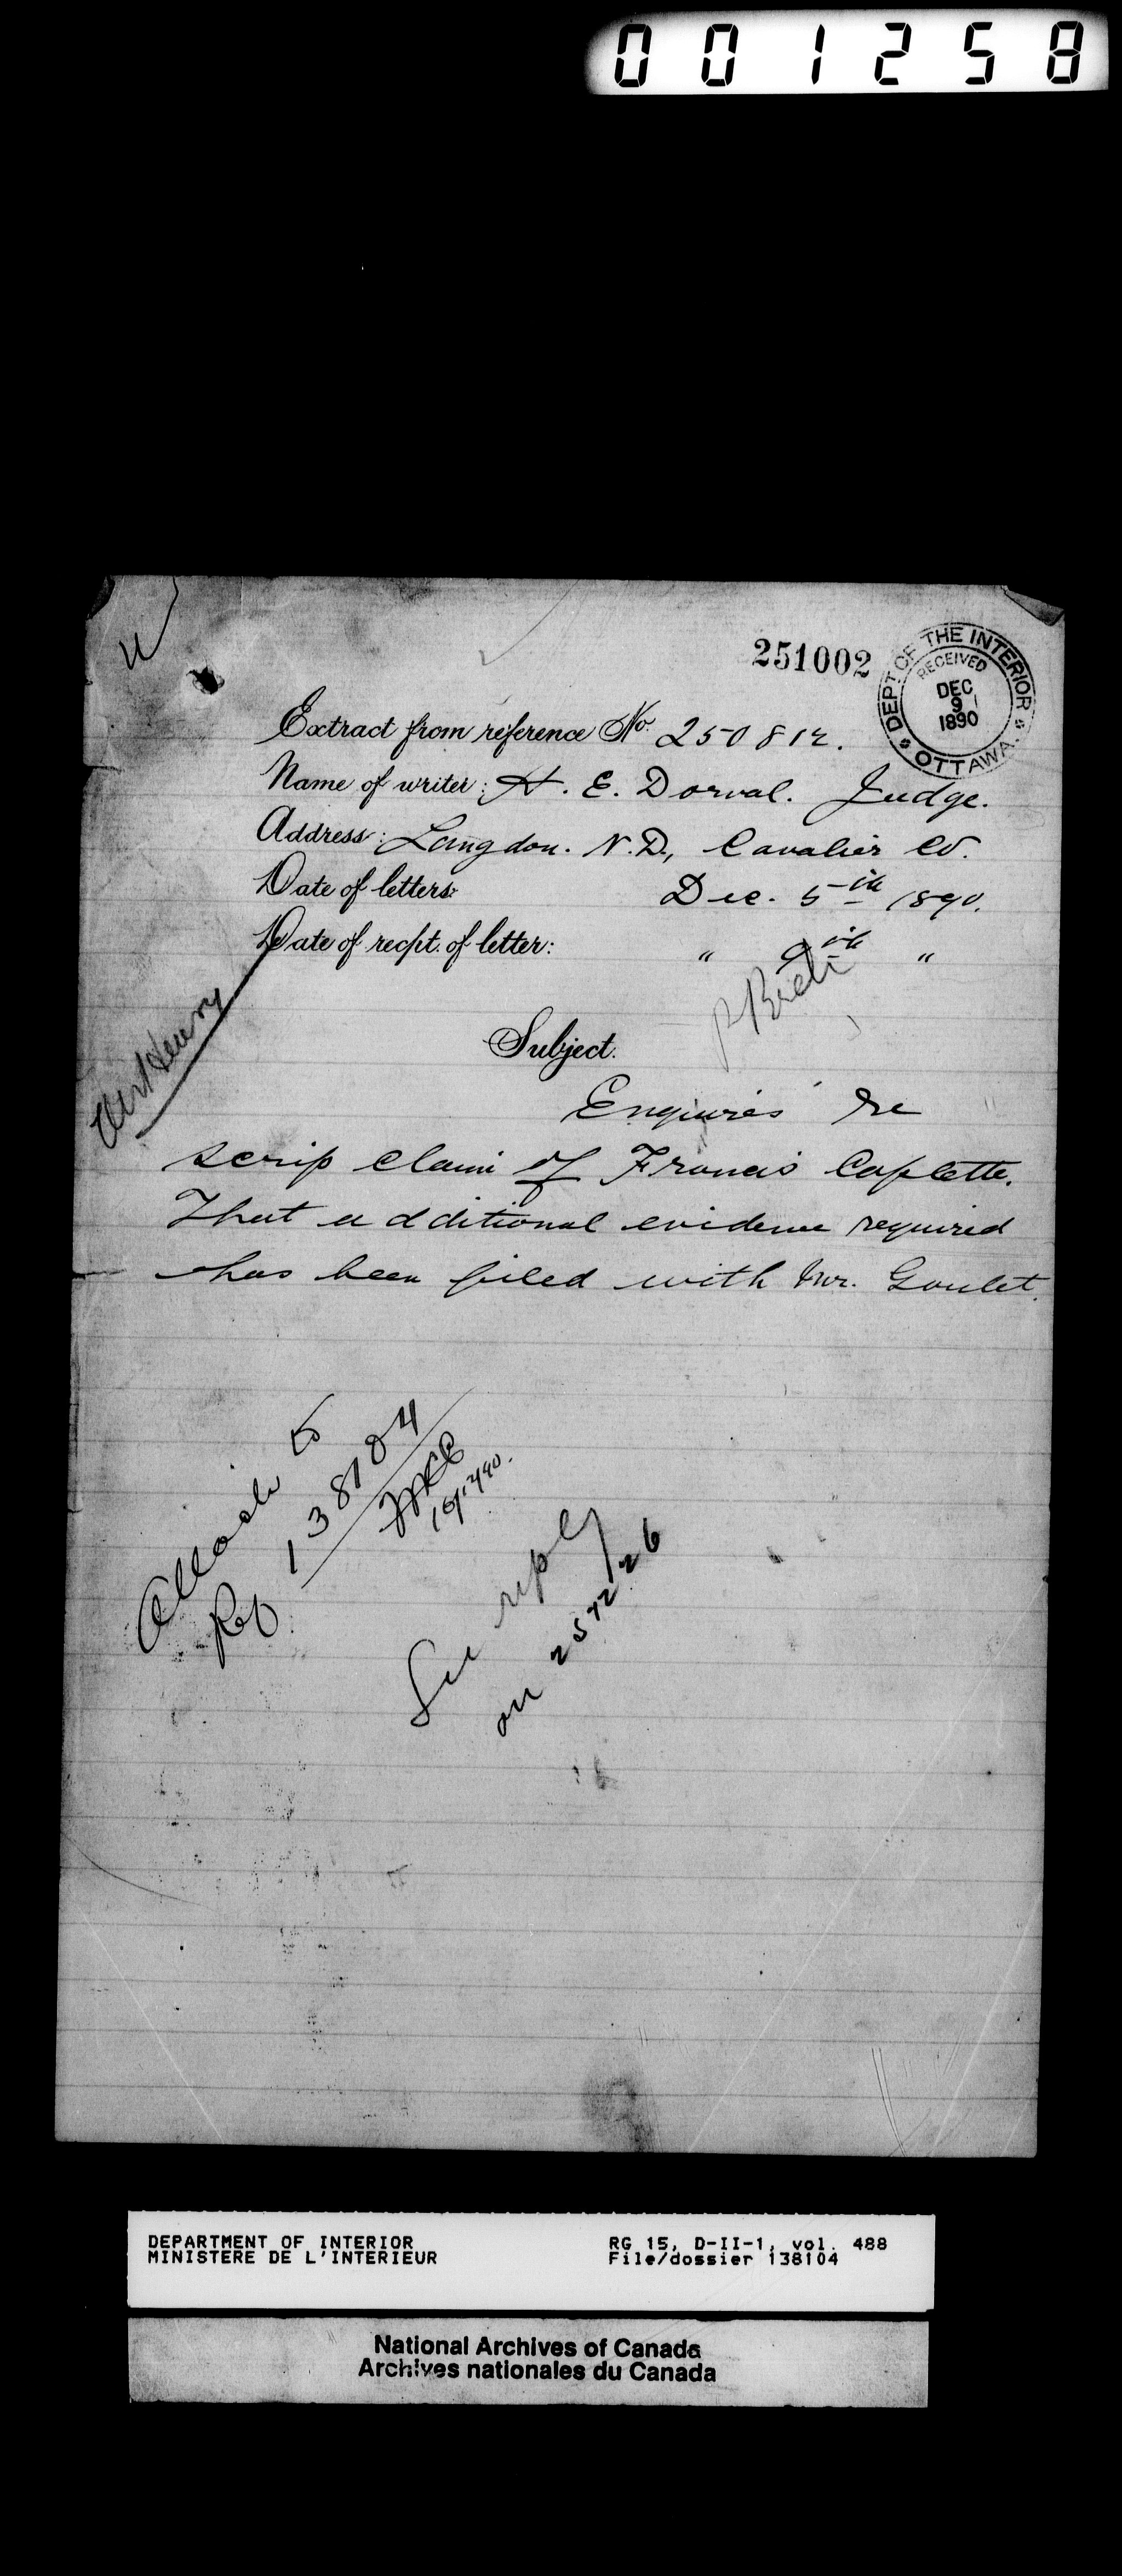 001258
251002
DEPT. OF THE INTERIOR
RECEIVED
DEC
9
1890
OTTAWA
Extract from reference No. 250812.
Name of writer: H. E. Dorval. Judge.
Address: Langdon. N.D., Cavalier Co.
Date of letters: Dec. 5th 1890.
Date of recpt. of letter: " 9th "
Mr Henry
Subject.
Enquires re
scrip claim of Francis Caplette.
That additional evidence required
has been filed with Mr. Goulet.
Attach to
Ref 138104
See reply
on 257226
DEPARTMENT OF INTERIOR
MINISTERE DE L'INTERIEUR
RG 15, D-II-1, vol. 488
File/dossier 138104
National Archives of Canada
Archives nationales du Canada